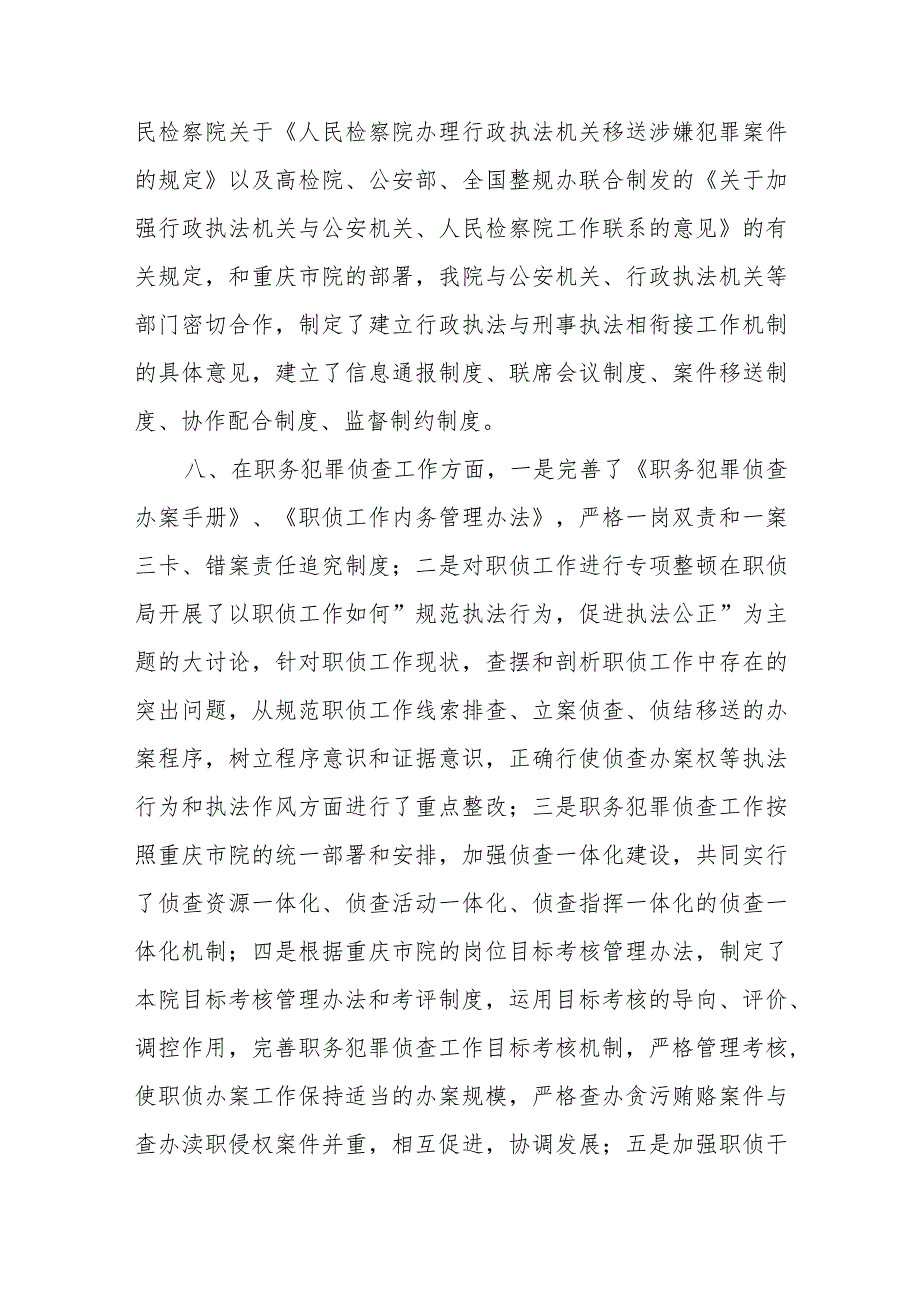 民检察院关于《人民检察院办理行政执法机关移送涉嫌犯罪案件
的规定》以及高检院、公安部、全国整规办联合制发的《关于加
强行政执法机关与公安机关、人民检察院工作联系的意见》的有
关规定，和重庆市院的部署，我院与公安机关、行政执法机关等
部门密切合作，制定了建立行政执法与刑事执法相衔接工作机制
的具体意见，建立了信息通报制度、联席会议制度、案件移送制
度、协作配合制度、监督制约制度。
八、在职务犯罪侦查工作方面，一是完善了《职务犯罪侦查
办案手册》、《职侦工作内务管理办法》，严格一岗双责和一案
三卡、错案责任追究制度；二是对职侦工作进行专项整顿在职侦
局开展了以职侦工作如何”规范执法行为，促进执法公正”为主
题的大讨论，针对职侦工作现状，查摆和剖析职侦工作中存在的
突出问题，从规范职侦工作线索排查、立案侦查、侦结移送的办
案程序，树立程序意识和证据意识，正确行使侦查办案权等执法
行为和执法作风方面进行了重点整改；三是职务犯罪侦查工作按
照重庆市院的统一部署和安排，加强侦查一体化建设，共同实行
了侦查资源一体化、侦查活动一体化、侦查指挥一体化的侦查一
体化机制；四是根据重庆市院的岗位目标考核管理办法，制定了
本院目标考核管理办法和考评制度，运用目标考核的导向、评价、
调控作用，完善职务犯罪侦查工作目标考核机制，严格管理考核，
使职侦办案工作保持适当的办案规模，严格查办贪污贿赂案件与
查办渎职侵权案件并重，相互促进，协调发展；五是加强职侦干